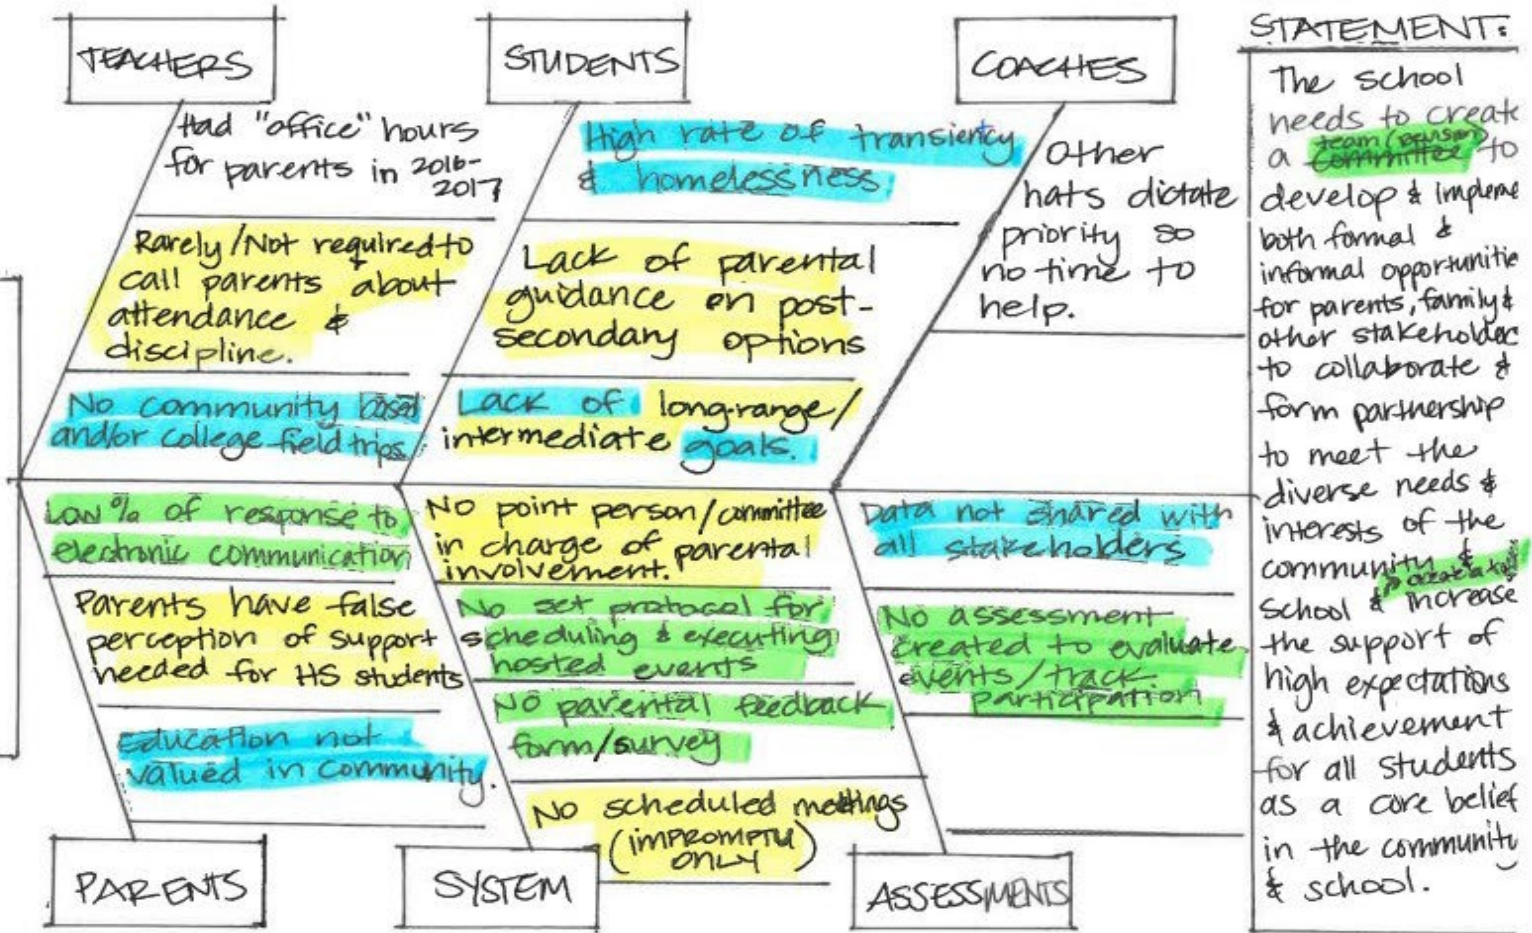 TEACHERS
Had "office" hours
for parents in 2016-
2017
Rarely/Not required to
call parents about
attendance &
discipline.
No community based
and/or college field trips
STUDENTS
High rate of transiency
& homelessness
Lack of parental
guidance on post-
secondary options
Lack of long-range/
intermediate goals.
COACHES
Other
hats dictate
priority so
no time to
help.
Low % of response to
electronic communication
Parents have false
perception of support
needed for HS students
Education not
valued in community.
PARENTS
No point person/committee
in charge of parental
involvement.
No set protocol for
scheduling & executing
hosted events
No parental feedback
form/survey
No scheduled meetings
(IMPROMPTU
ONLY)
SYSTEM
Data not shared with
all stakeholders
No assessment
created to evaluate
events/track
participation
ASSESSMENTS
STATEMENT:
The school
needs to create
team
a committee to
develop & impleme
both formal &
informal opportunitie
for parents, family &
other stakeholder
to collaborate &
form partnership
to meet the
diverse needs &
interests of the
community &
school & increase
the support of
high expectations
& achievement
for all students
as a core belief
in the community
& school.